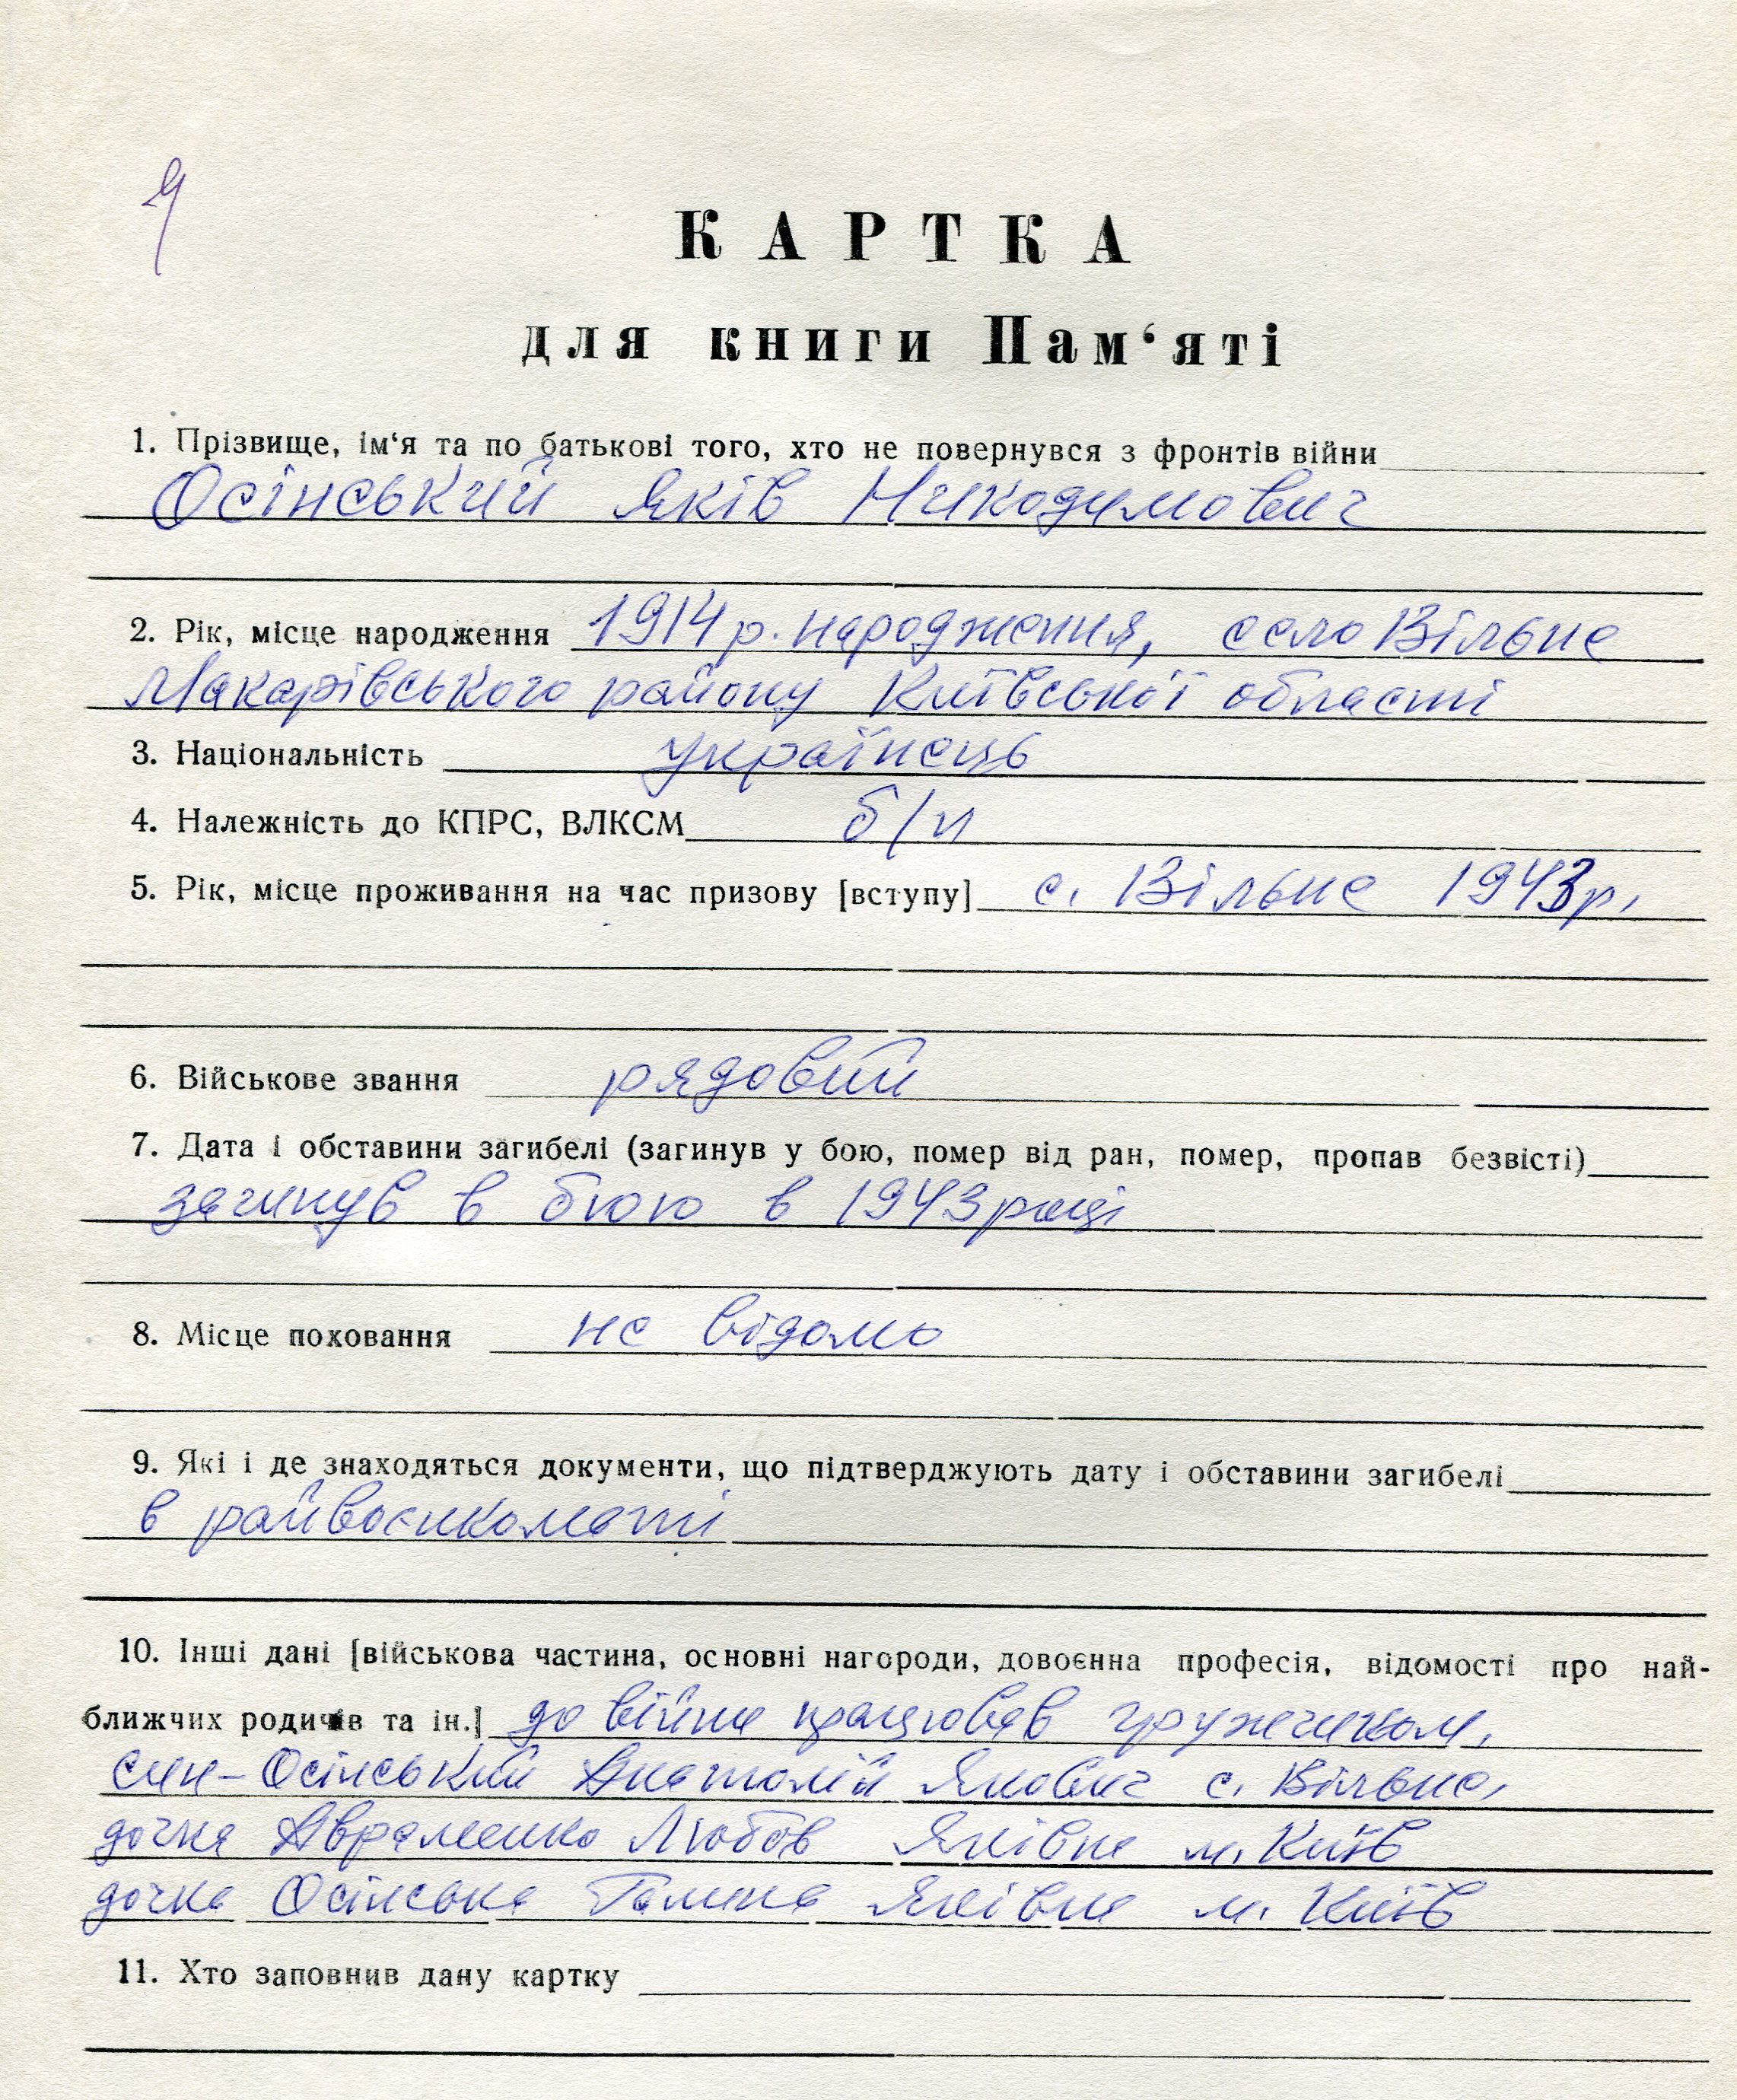 КАРТКА
для книги Пам‘яті
1. Прізвище, ім‘я та по батькові того, хто не повернувся з фронтів війни
Осінський Яків Никодимович
2. Рік, місце народження 1914 р. народження, село Вільне
Макарівського району Київської області
3. Національність українець
4. Належність до КПРС, ВЛКСМ б/п
5. Рік, місце проживання на час призову [вступу] с. Вільне 1943 р.
6. Військове звання рядовий
7. Дата і обставини загибелі (загинув у бою, помер від ран, помер, пропав безвісті)
загинув в бою в 1943 році
8. Місце поховання не відомо
9. Які і де знаходяться документи, що підтверджують дату і обставини загибелі
в райвоєнкоматі
10. Інші дані [військова частина, основні нагороди, довоєнна професія, відомості про най-
ближчих родичів та ін.] до війни працював
син – Осінський Анатолій Якович с. Вільне,
дочка Авраменко Любов Яківна м. Київ
дочка Осінська Галина Яківна м. Київ
11. Хто заповнив дану картку